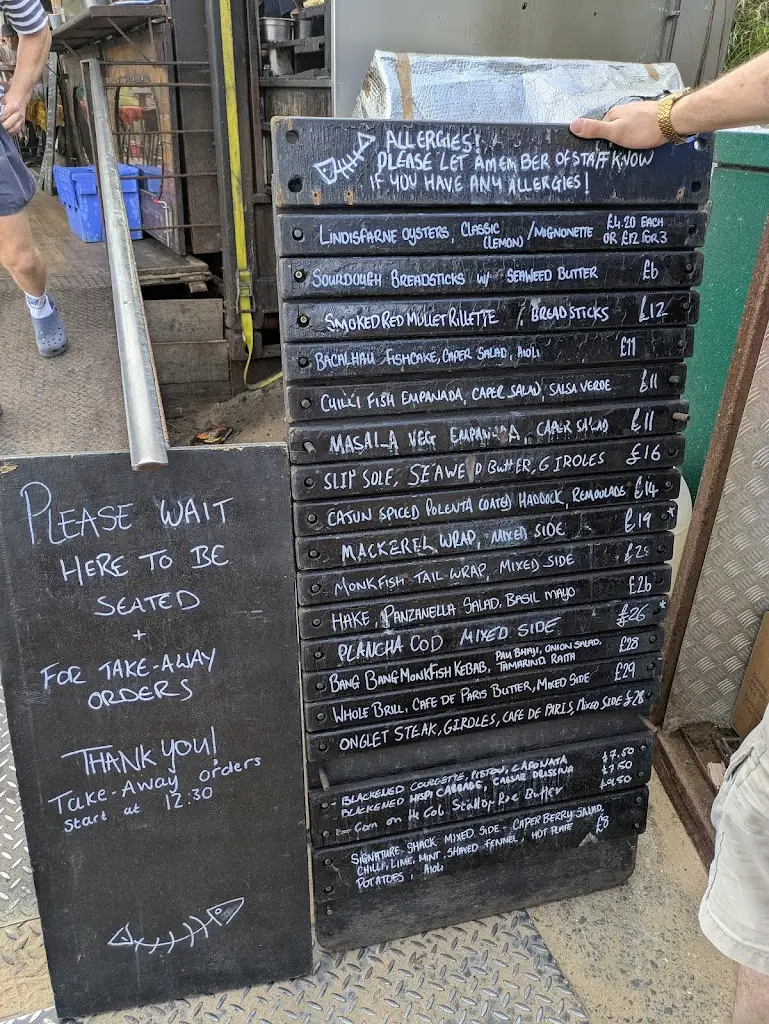 ALLERGIES!
PLEASE LET A MEMBER OF STAFF KNOW
IF YOU HAVE ANY ALLERGIES!
LINDISFARNE OYSTERS, CLASSIC (LEMON) / MIGNONETTE £4.20 EACH OR £12 FOR 3
SOURDOUGH BREADSTICKS W/ SEAWEED BUTTER £6
SMOKED RED MULLET RILLETTE / BREADSTICKS £12
BACALHAU FISHCAKE, CAPER SALAD, AIOLI £11
CHILLI FISH EMPANADA, CAPER SALAD, SALSA VERDE £11
MASALA VEG EMPANADA, CAPER SALAD £11
SLIP SOLE, SEAWEED BUTTER, GIROLES £16
CAJUN SPICED POLENTA COATED HADDOCK, REMOULADE £14
MACKEREL WRAP, MIXED SIDE £19*
MONKFISH TAIL WRAP, MIXED SIDE
HAKE, PANZANELLA SALAD, BASIL MAYO £26
PLANCHA COD MIXED SIDE £26*
BANG BANG MONKFISH KEBAB, PAU BHAJI, ONION SALAD, TAMARIND RAITA £28
WHOLE BRILL, CAFE DE PARIS BUTTER, MIXED SIDE £29
ONGLET STEAK, GIROLES, CAFE DE PARIS, MIXED SIDE £28
BLACKENED COURGETTE, PISTOU, CAPONATA £7.50
BLACKENED HISPI CABBAGE, CAESAR DRESSING £7.50
Corn on the Cob, Scallop Roe Butter
SIGNATURE SHACK MIXED SIDE - CAPER BERRY SALAD, £8
CHILLI, LIME, MINT, SHAVED FENNEL, HOT PLATE
POTATOES, AIOLI
PLEASE WAIT
HERE TO BE
SEATED
+
FOR TAKE-AWAY
ORDERS
THANK YOU!
Take-Away orders
start at 12.30